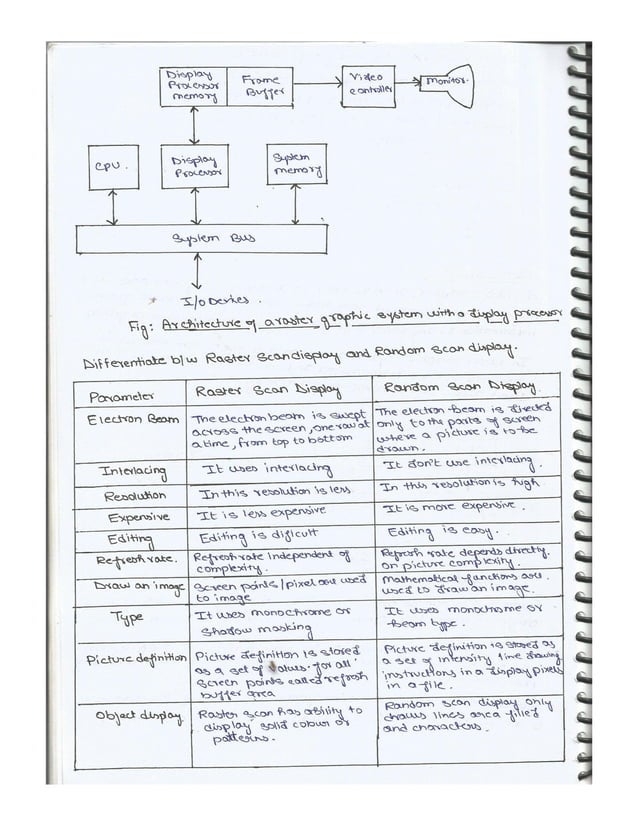 Display Processor memory
Frame Buffer
Video controller
monitor.
CPU.
Display Processor
System memory
System Bus
I/o Devices.
Fig: Architecture of a raster graphic system with a display processor
Differentiate b/w Raster scan display and Random scan display.
Parameter Raster Scan Display Random Scan Display
Electron Beam
The electron beam is swept
across the screen, one row at
a time, from top to bottom
The electron beam is directed
only to the parts of screen
where a picture is to be
drawn.
Interlacing It uses interlacing It don't use interlacing.
Resolution In this resolution is less In this resolution is high
Expensive It is less expensive It is more expensive.
Editing Editing is dificult Editing is easy.
Refresh rate.
Refresh rate independent of
complexity.
Refresh rate depends directly.
on picture complexity.
Draw an image
screen points/pixel are used
to image
Mathematical functions are.
used to draw an image.
Type
It uses monochrome or
shadow masking
It uses monochrome or
beam type.
Picture definition
Picture definition is stored
as a set of values for all
screen points called refresh
buffer area
Picture definition is stored as
a set of intensity line drawing
instructions in a display pixels
in a file.
Object display.
Raster scan has ability to
display solid colour or
patterns.
Random scan display only
draws lines area filled
and characters.